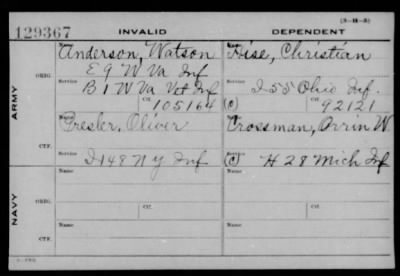 (3-H-5)
129367 INVALID DEPENDENT
ARMY
ORIG.
Name Anderson, Watson
E 9 W Va Inf
Service B 1 W Va Vet Inf
Ctf. 105164
Name Hise, Christian
Service I 55 Ohio Inf.
(C) Ctf. 92121
CTF.
Name Presler, Oliver
Service I 148 N Y Inf
Name Crossman, Orrin W.
Service (C) H 28 Mich Inf
NAVY
ORIG.
Name
Service Ctf.
Name
Service Ctf.
CTF.
Name
Service
Name
Service